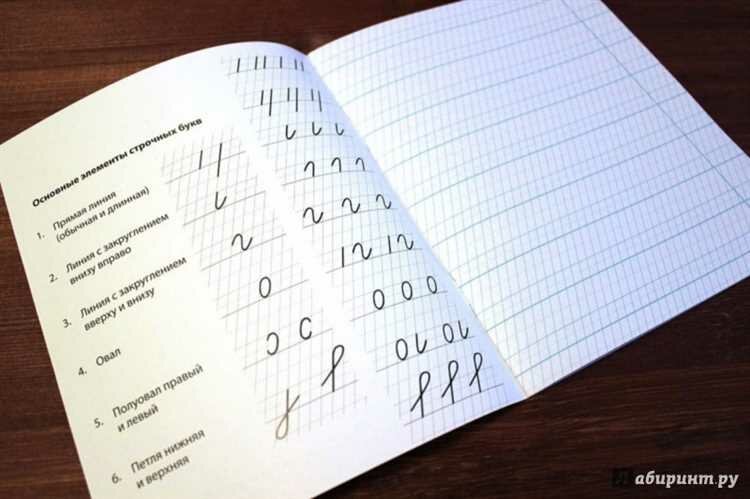 Основные элементы строчных букв
1. Прямая линия
(обычная и длинная)
2. Линия с закруглением
внизу вправо
3. Линия с закруглением
вверху и внизу
4. Овал
5. Полуовал правый
и левый
6. Петля нижняя
и верхняя
Лабиринт.ру